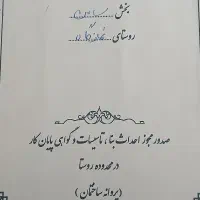 بخش
روستای
صدور مجوز احداث بنا ، تاسیسات و گواهی پایان کار
در محدوده روستا
( پروانه ساختمان )